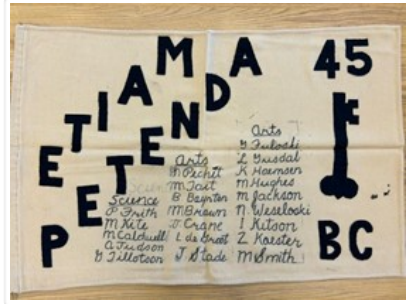 ETIAM
PETENDA
45
BC
Science
P Frith
M Kite
M Caldwell
A Judson
G Tillotson
Arts
Pechet
M Tait
B Boynton
M Brown
Crane
L de Groot
J. Stade
Arts
L Gusdal
K
M Hughes
M Jackson
N. Weseloski
I Kitson
Z Koester
M Smith